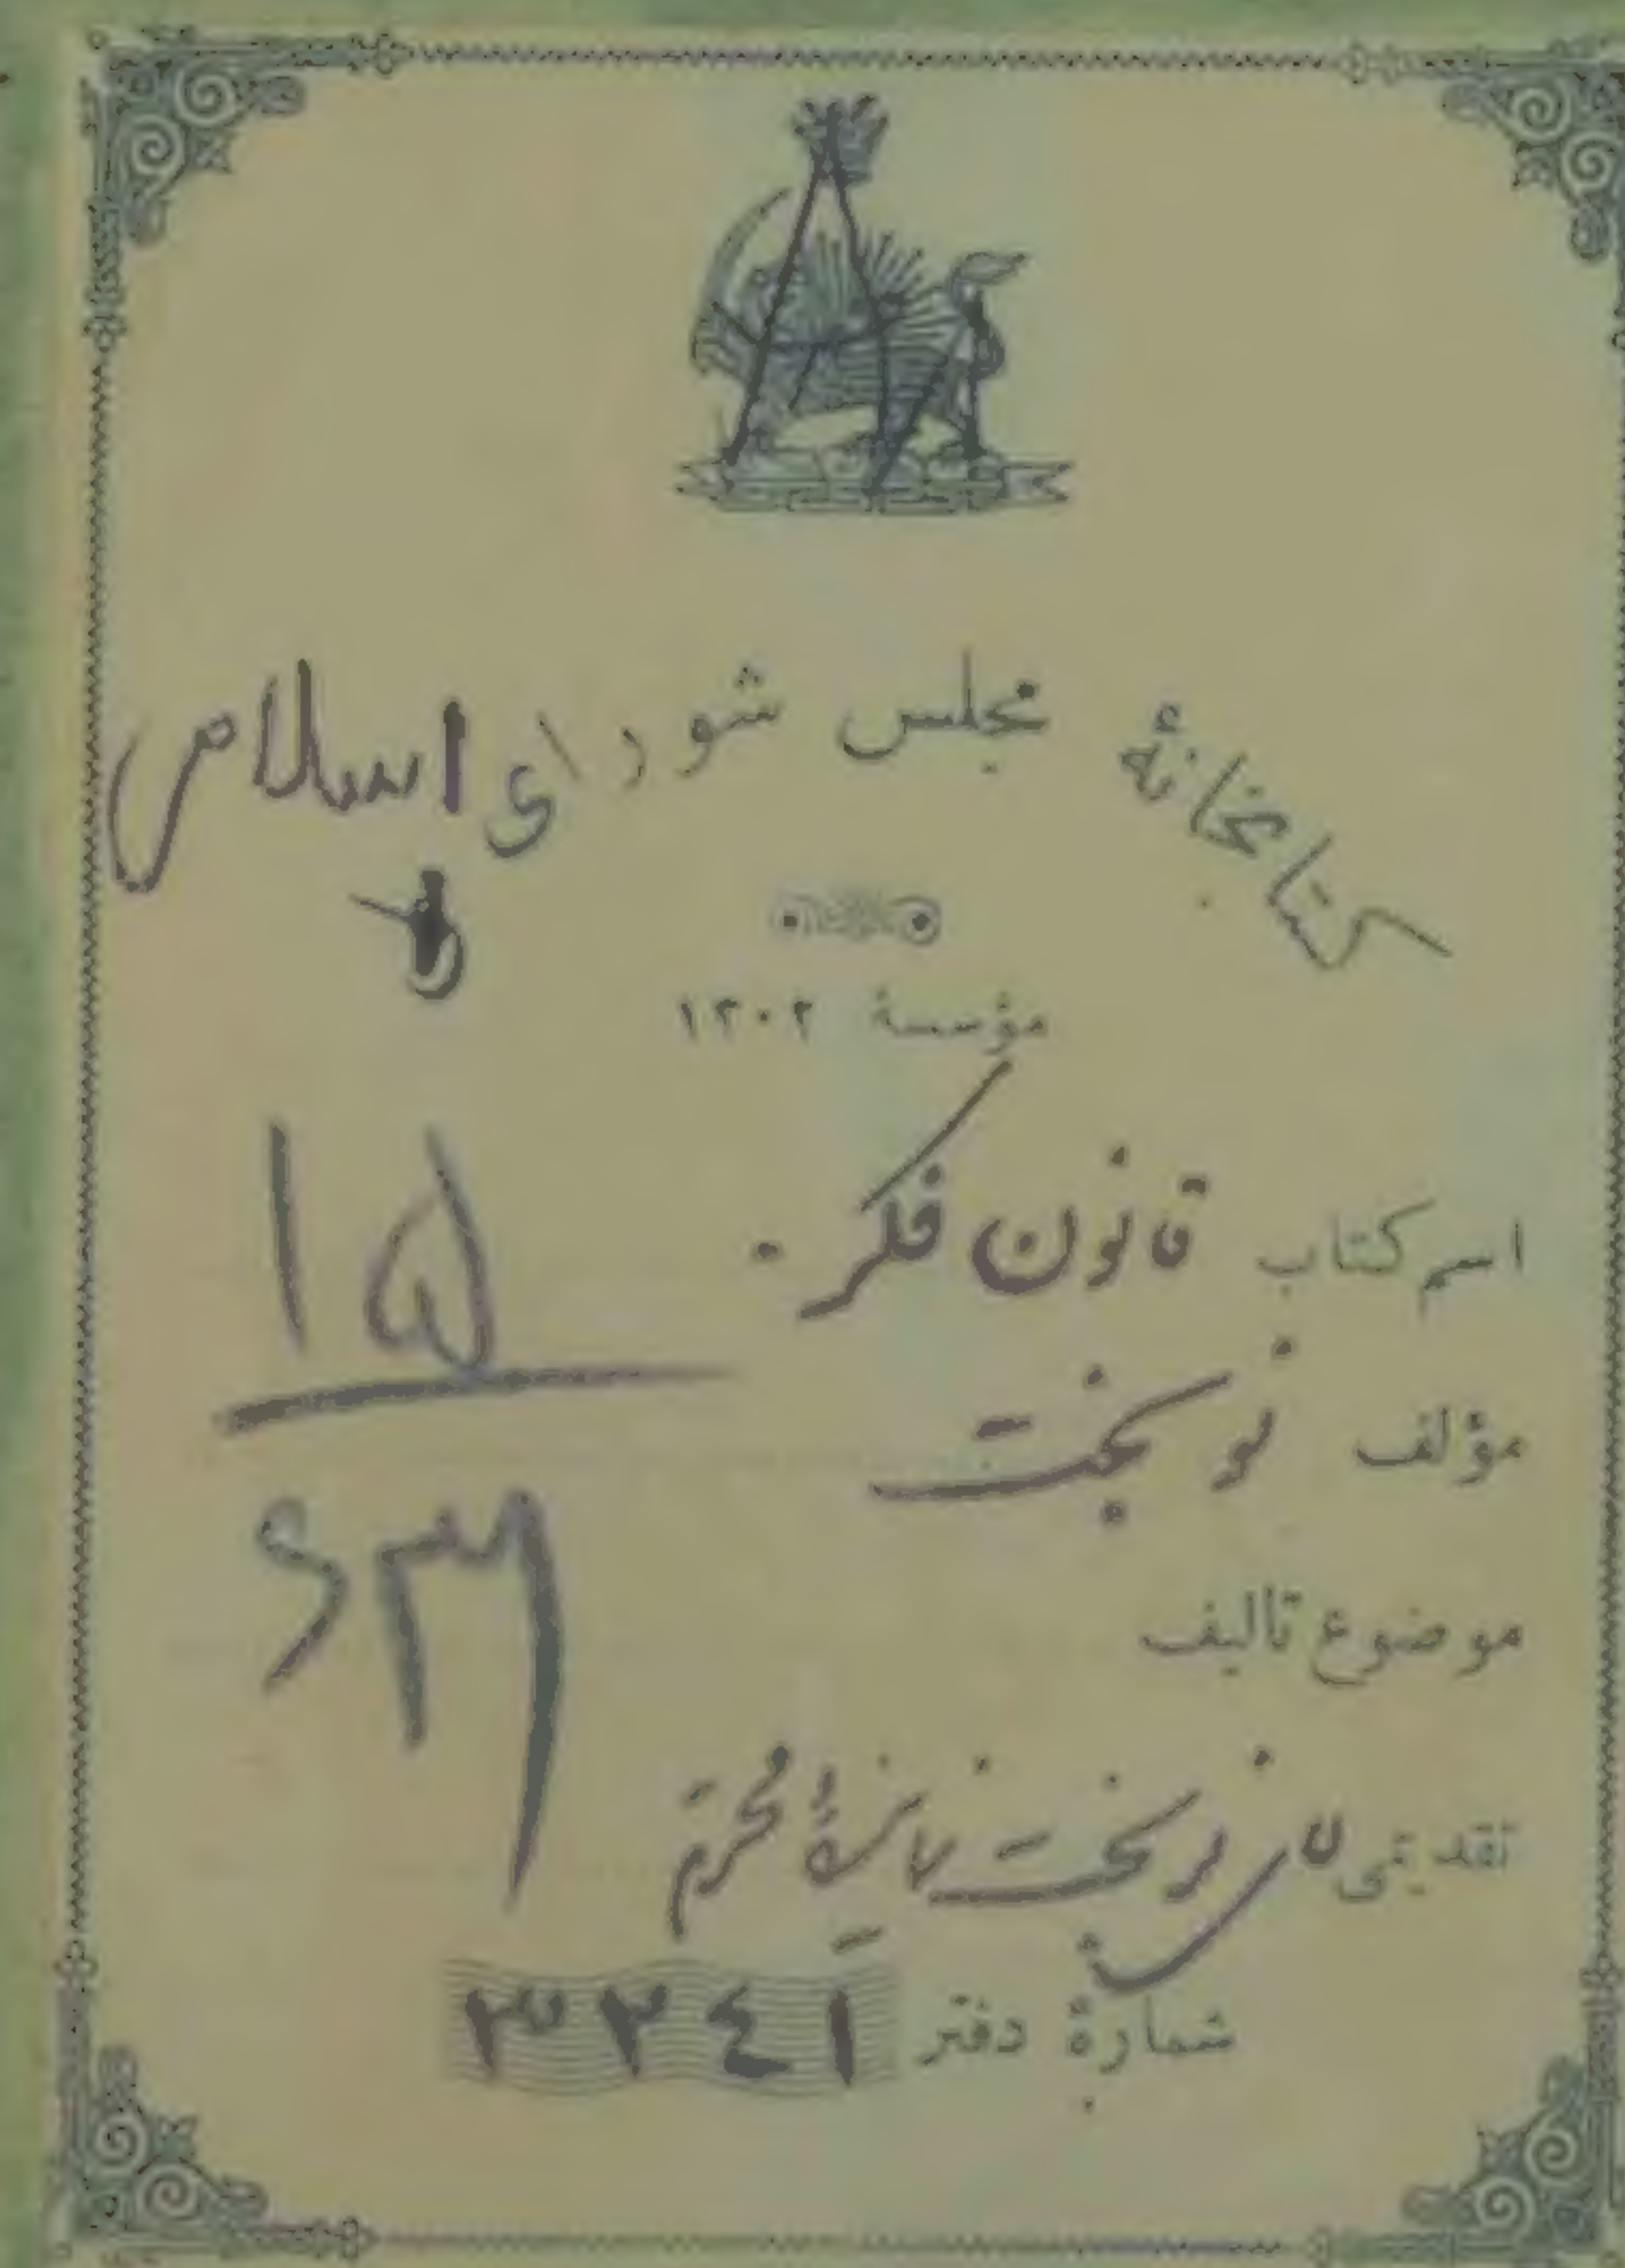 کتابخانهٔ مجلس شورای اسلامی
مؤسسهٔ ۱۳۰۲
اسم کتاب قانون فکر.
مؤلف نوبخت
موضوع تألیف
تقدیمی آقای نوبخت نمایندهٔ محترم
شمارهٔ دفتر ۳۲۴۱
۱۵
۶۳۲